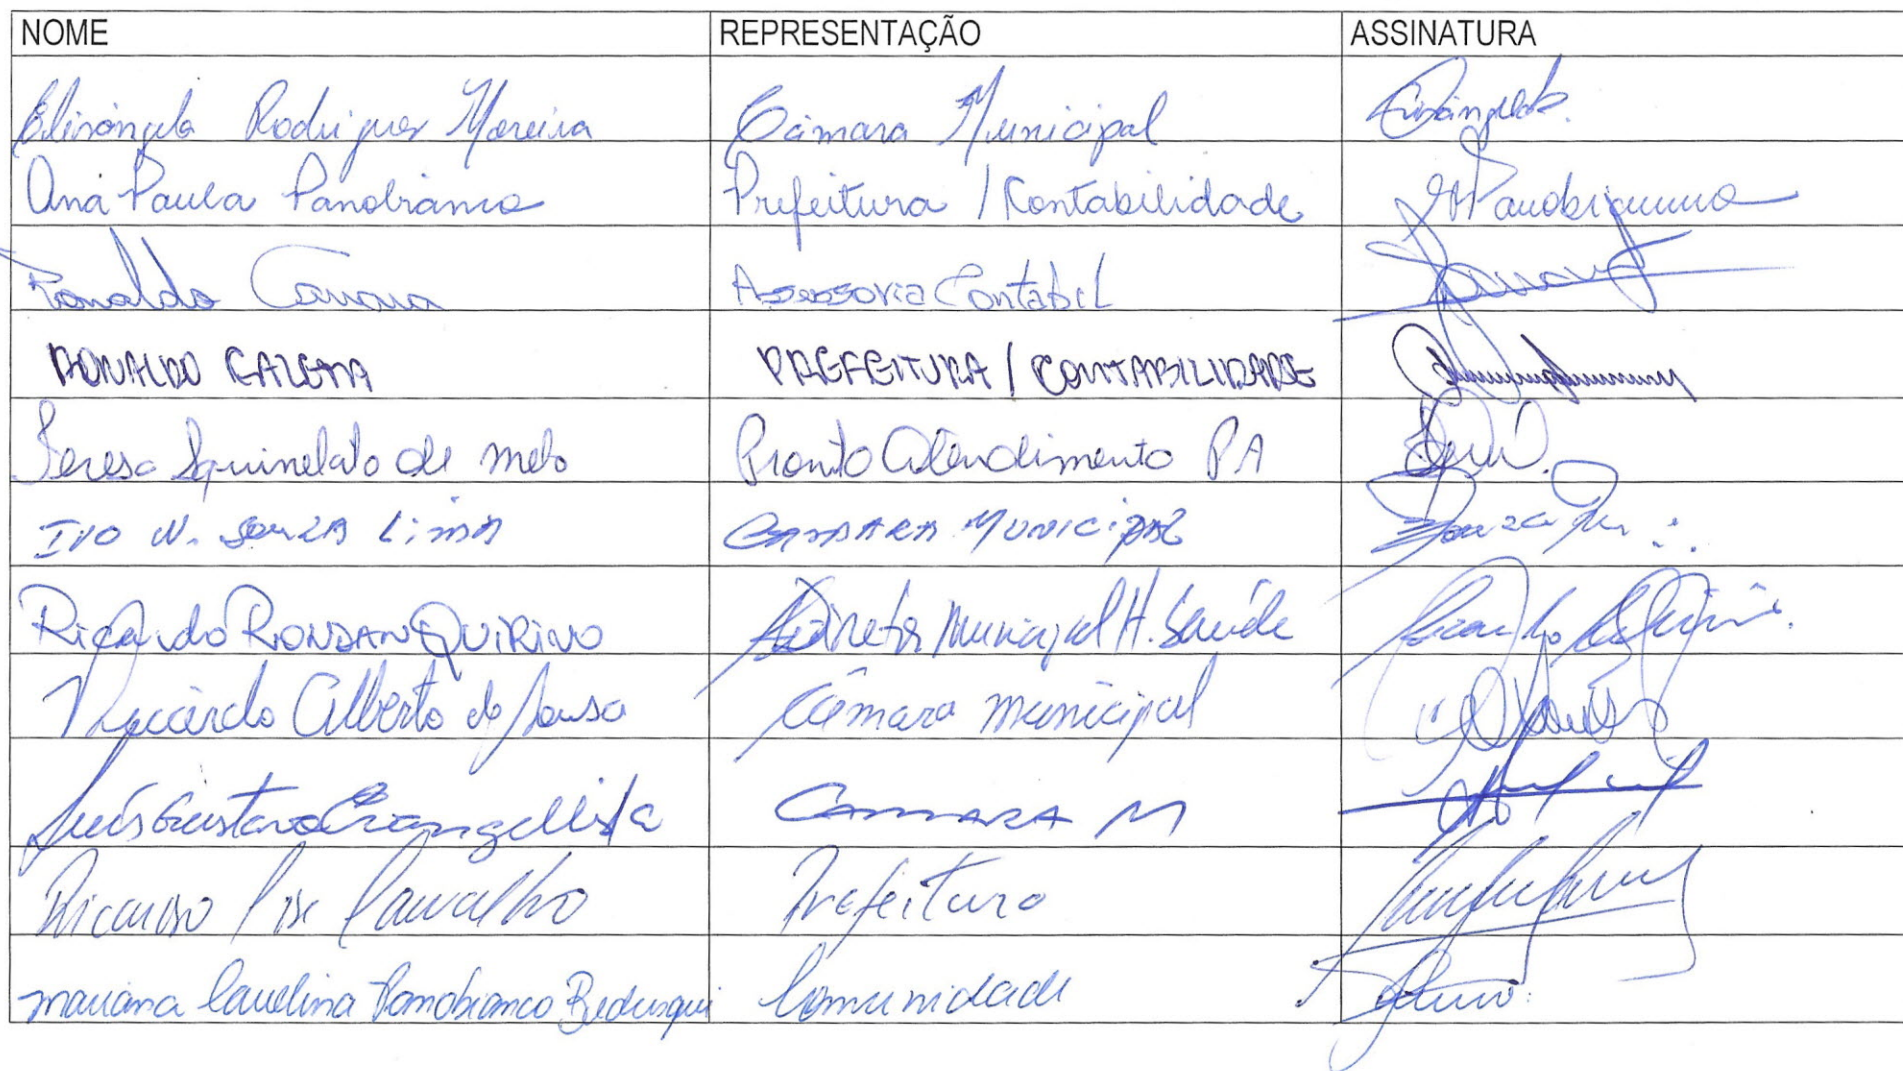 NOME REPRESENTAÇÃO ASSINATURA
Elisângela Rodrigues Moreira Câmara Municipal Elisângela
Ana Paula Panobianco Prefeitura / Contabilidade Panobianco
Ronaldo Canova Assessoria Contabil
RONALDO CALGATA PREFEITURA / CONTABILIDADE
Teresa Squinelato de Melo Pronto Atendimento PA
IVO N. SOUZA LIMA CAMARA MUNICIPAL Souza
Ricardo RONDAN QUIRINO Diretor Municipal H. Saúde
Riccardo Alberto de Sousa Câmara municipal
Luís Gustavo Evangelista CAMARA M
Ricardo José Carvalho Prefeitura
Mariana Carolina Panobianco Bedusqui Comunidade